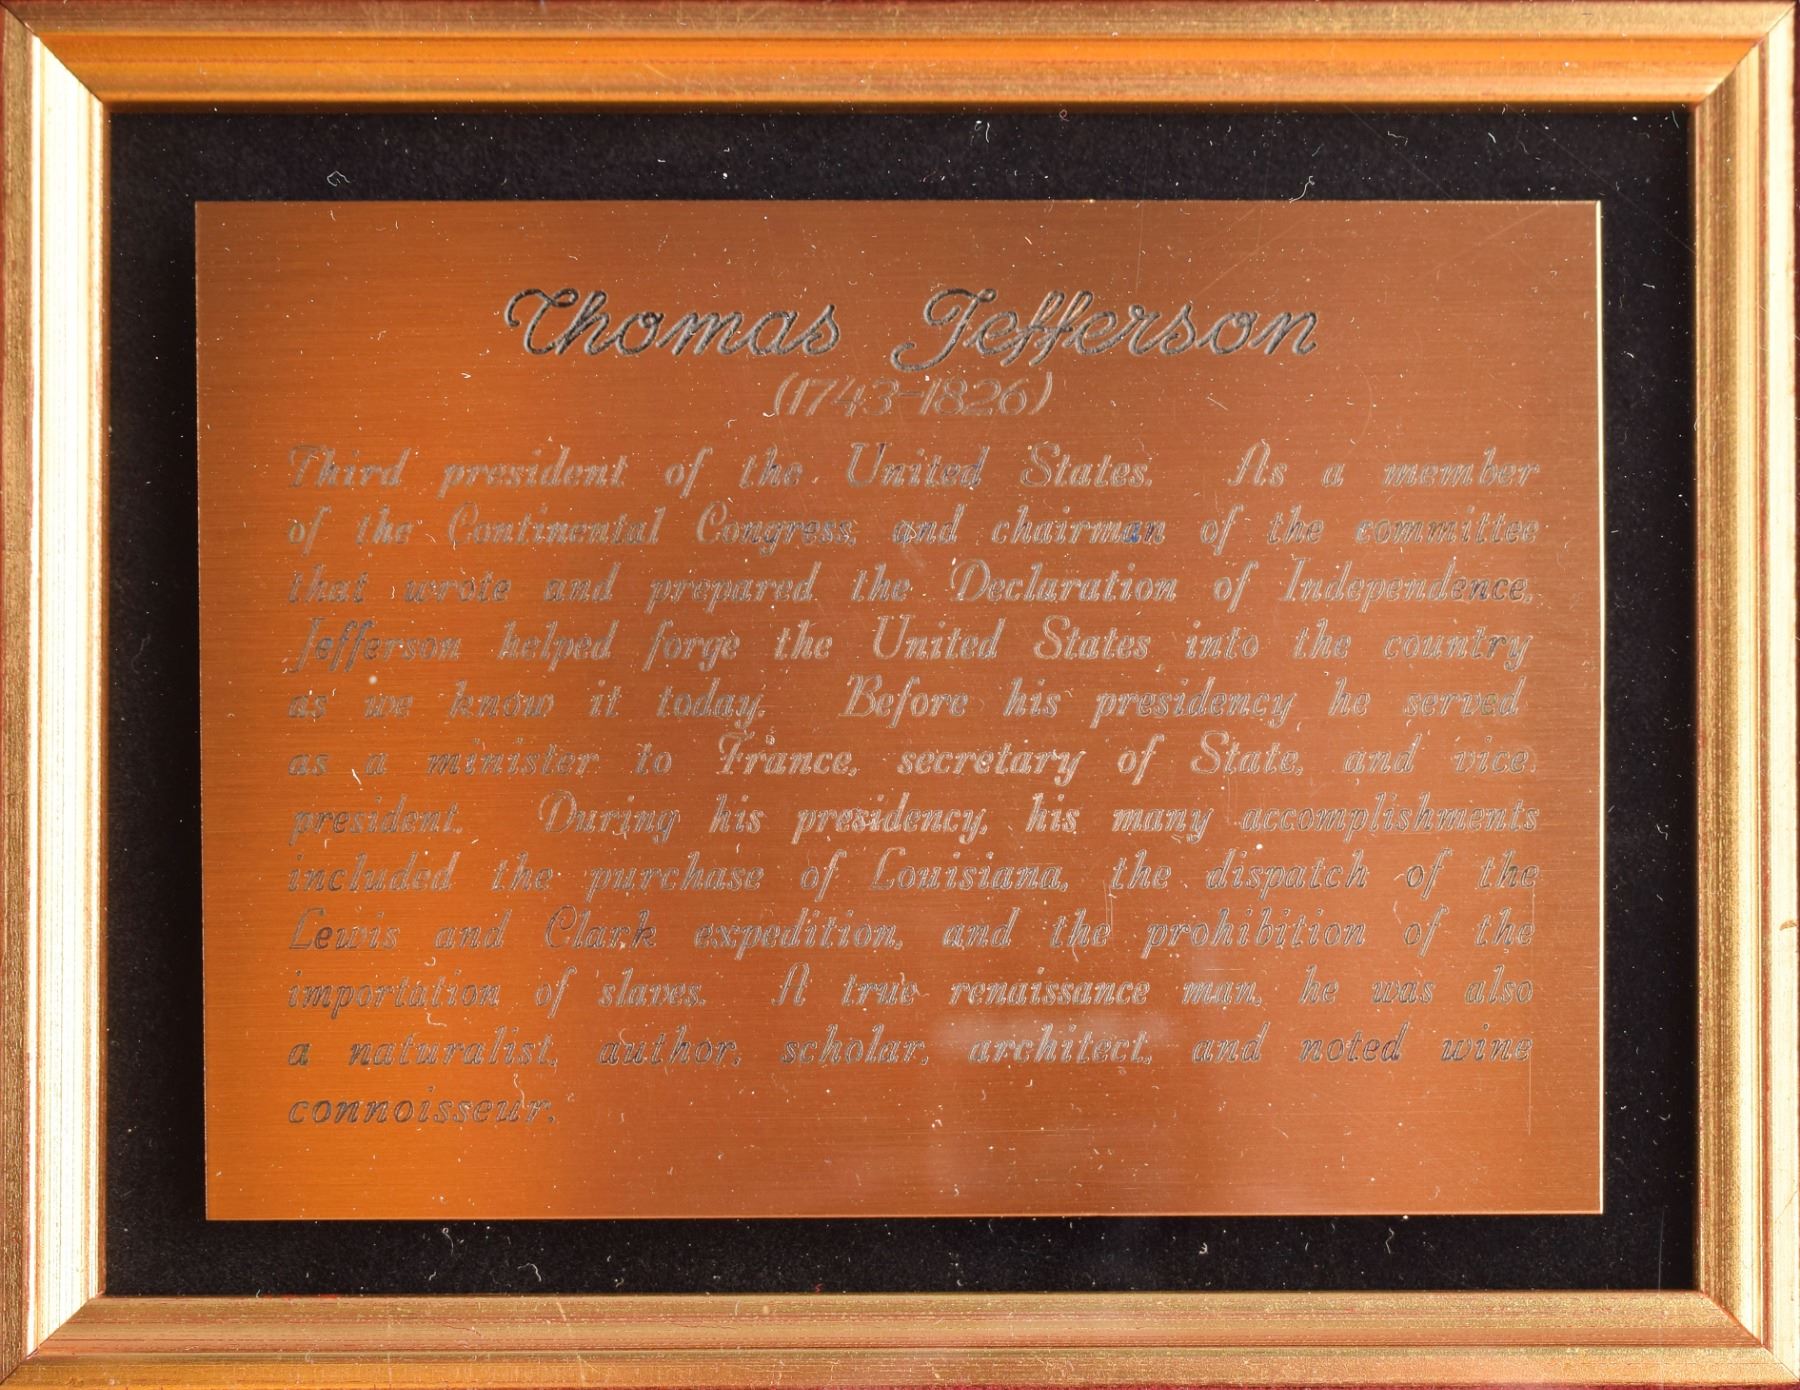 Thomas Jefferson
(1743-1826)
Third president of the United States. As a member
of the Continental Congress, and chairman of the committee
that wrote and prepared the Declaration of Independence,
Jefferson helped forge the United States into the country
as we know it today. Before his presidency he served
as a minister to France, secretary of State, and vice
president. During his presidency, his many accomplishments
included the purchase of Louisiana, the dispatch of the
Lewis and Clark expedition, and the prohibition of the
importation of slaves. A true renaissance man, he was also
a naturalist, author, scholar, architect, and noted wine
connoisseur.